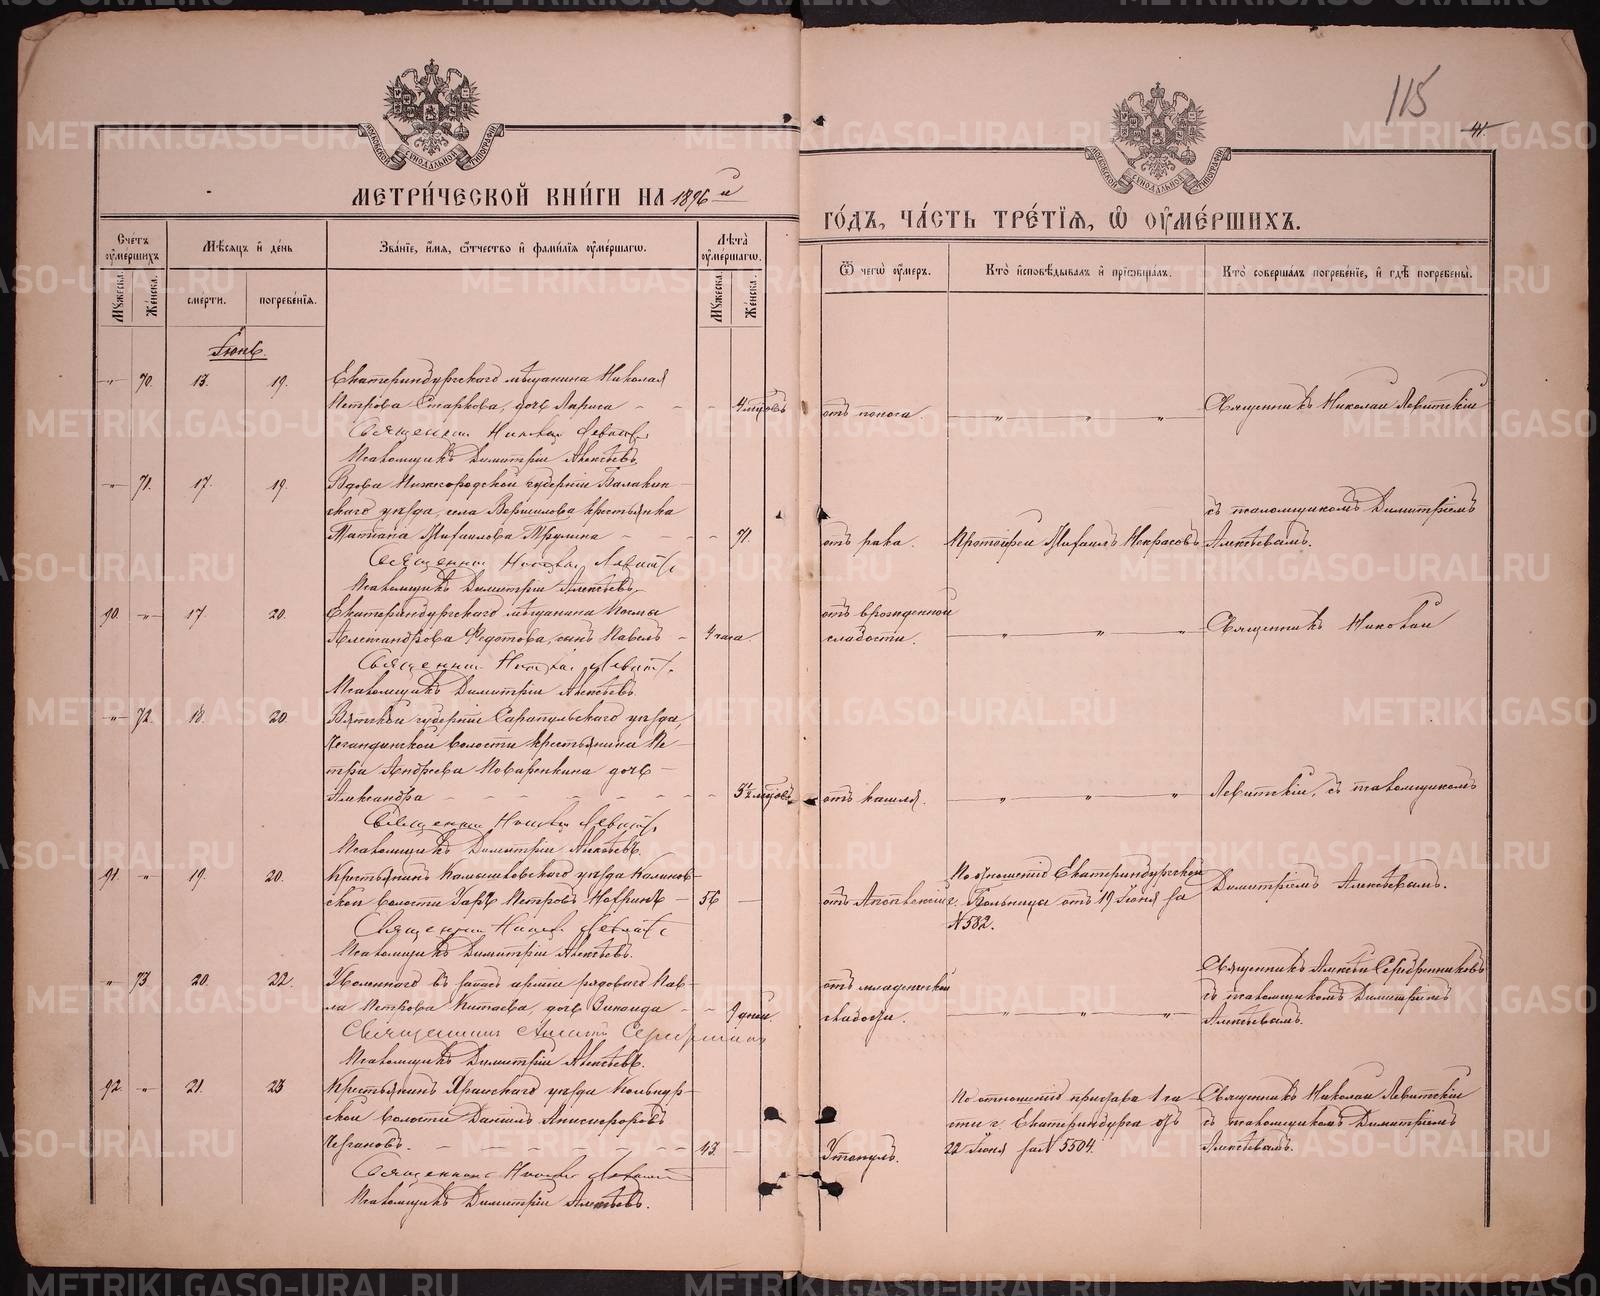 115
41.
МЕТРИЧЕСКОЙ КНИГИ НА 1896 й
ГОДЪ, ЧАСТЬ ТРЕТІЯ, Ѡ ОУМЕРШИХЪ.
Счетъ оумершихъ
Мужеска.
Женска.
Мѣсяцъ и день
смерти.
погребенія.
Званіе, имя, отчество и фамилія оумершагѡ.
Лѣта оумершагѡ.
Мужеска.
Женска.
Ѿ чегѡ оумеръ.
Кто исповѣдывалъ и пріобщалъ.
Кто совершалъ погребеніе, и гдѣ погребены.
Іюнь.
" 70. 13. 19. Екатеринбургскаго мѣщанина Николая
Петрова Старкова, дочь Лариса 4 мѣсяцовъ отъ поноса Священникъ Николай Левитскій
Священникъ Николай Левитскій
Псаломщикъ Димитрій Алексѣевъ
" 71. 17. 19. Вдова Нижегородской губерніи Балахин-
скаго уѣзда, села крестьянка съ псаломщикомъ Димитріемъ
Михаилова 71. отъ рака. Протоіерей Михаилъ Некрасовъ Алексѣевымъ.
Священникъ Николай Левитскій
Псаломщикъ Димитрій Алексѣевъ
90. " 17. 20. Екатеринбургскаго мѣщанина Косьмы отъ врожденной
Александрова Федотова, сынъ Павелъ 4 часа. слабости. Священникъ Николай
Священникъ Николай Левитскій
Псаломщикъ Димитрій Алексѣевъ
" 72. 18. 20. Вятской губерніи Сарапульскаго уѣзда,
волости крестьянина Пе-
тра Андреева дочь
Александра 5½ мѣсяцовъ отъ кашля. Левитскій, съ псаломщикомъ
Священникъ Николай Левитскій
Псаломщикъ Димитрій Алексѣевъ.
91. " 19. 20. Крестьянинъ Камышловскаго уѣзда Калинов- По отношенію Екатеринбургской Димитріемъ Алексѣевымъ.
ской волости Петровъ 56 отъ г. Больницы отъ 19 Іюня за
№ 582.
Священникъ Николай Левитскій
Псаломщикъ Димитрій Алексѣевъ.
" 73 20. 22. Уволеннаго въ запасъ арміи рядоваго Пав- отъ младенческой Священникъ Алексѣй Серебренниковъ
ла Петрова Китаева, дочь Зинаида 9 дней. слабости. съ псаломщикомъ Димитріемъ
Алексѣевымъ.
Священникъ Алексѣй Серебренниковъ
Псаломщикъ Димитрій Алексѣевъ.
92. " 21. 23 Крестьянинъ Яранскаго уѣзда По отношенію пристава 1 ча- Священникъ Николай Левитскій
ской волости Даніилъ сти г. Екатеринбурга отъ съ псаломщикомъ Димитріемъ
43. Утонулъ. 22 Іюня за № 5504. Алексѣевымъ.
Священникъ Николай Левитскій
Псаломщикъ Димитрій Алексѣевъ.
METRIKI.GASO-URAL.RU